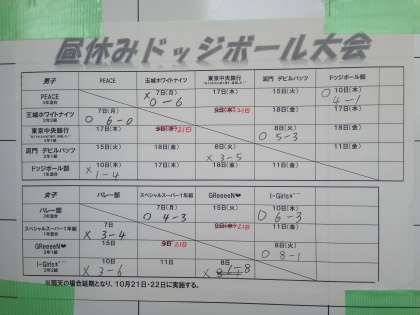 昼休みドッジボール大会
男子 PEACE 玉城ホワイトナイツ 東京中央銀行 泥門 デビルバッツ ドッジボール部
PEACE 7日(月) 17日(木) 15日(火) 10日(木)
3年混合 × 0-6 ○ 4-1
玉城ホワイトナイツ 7日(月) 9日(水) 21日 18日(金) 17日(木)
2年3組 ○ 6-0
東京中央銀行 17日(木) 9日(水) 21日 8日(火) 18日(金)
○ 5-3
泥門 デビルバッツ 15日(火) 18日(金) 8日(火) 11日(金)
2年1組 × 3-5
ドッジボール部 10日(木) 17日(木) 18日(金) 11日(金)
1年混合 × 1-4
女子 バレー部 スペシャルスーパー1年組 GReeeeN❤ I-Girls
バレー部 7日(月) 15日(火) 10日(木)
3年混合 ○ 4-3 ○ 6-3
スペシャルスーパー1年組 7日 9日(水) 21日 11日(金)
× 3-4
GReeeeN❤ 15日 9日 21日 8日(火)
2年1組 ○ 8-1
I-Girls 10日 11日 8日
2年2組 × 3-6 × 1-8
※雨天の場合延期となり、10月21日・22日に実施する。